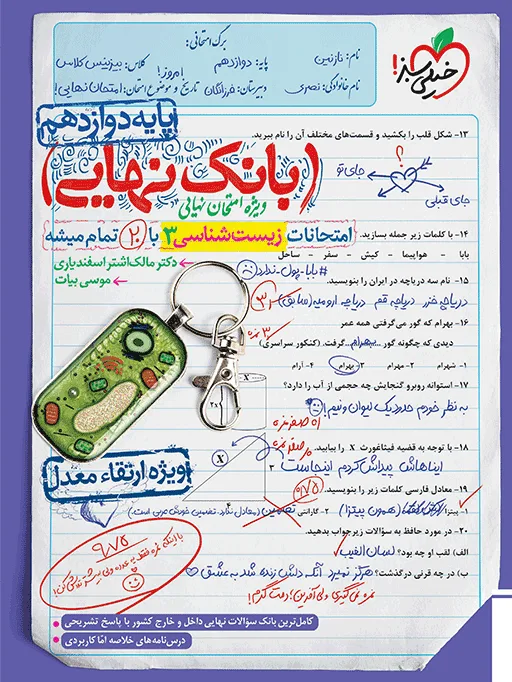 خیلی سبز!
برگ امتحانی:
نام: نازنین
پایه: دوازدهم
کلاس: بیزینس کلاس
نام خانوادگی: نصری
دبیرستان: فرزانگان
تاریخ و موضوع امتحان: امتحان نهایی!
امروز!
پایه دوازدهم
(بانک نهایی)
ویژه امتحان نهایی
امتحانات زیست‌شناسی ۳ با ۲۰ تمام میشه
دکتر مالک‌اشتر اسفندیاری
موسی بیات
۱۳- شکل قلب را بکشید و قسمت‌های مختلف آن را نام ببرید.
؟
جای تو
جای قبلی
۱۴- با کلمات زیر جمله بسازید.
بابا - هواپیما - کیش - سفر - ساحل
#بابا_پول_ندارد
۱۵- نام سه دریاچه در ایران را بنویسید.
دریاچه خزر دریاچه قم دریاچه ارومیه (سابق)
۱۶- بهرام که گور می‌گرفتی همه عمر
دیدی که چگونه گور ...بهرام... گرفت. (کنکور سراسری)
۱- شهرام ۲- مهرام ۳- بهرام ۴- آرام
۱۷- استوانه روبرو گنجایش چه حجمی از آب را دارد؟
به نظر خودم حدود یک لیوان و نیم!
۱۸- با توجه به قضیه فیثاغورث X را بیابید.
ایناهاش پیداش کردم اینجاست
X
۳
۴
۱۹- معادل فارسی کلمات زیر را بنویسید.
۱- پیتزا (همون پیتزا) ۲- گارانتی تضمین (معادل ندارد. تضمین خودش عربی است.)
۲۰- در مورد حافظ به سؤالات زیر جواب بدهید.
الف) لقب او چه بود؟ لسان الغیب
ب) در چه قرنی درگذشت؟ هرگز نمیرد آنکه دلش زنده شد به عشق
نمره نمی‌گیری ولی آفرین! دمت گرم!
ویژه ارتقاء معدل
۹/۷۵
کامل‌ترین بانک سؤالات نهایی داخل و خارج کشور با پاسخ تشریحی
درس‌نامه‌های خلاصه اما کاربردی